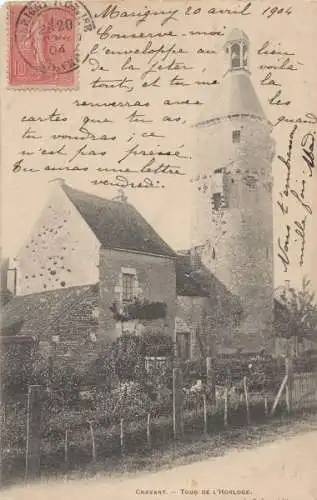 Marigny 20 avril 1904
Conserve-moi
l'enveloppe au lieu
de la jeter, et tu me la
renverras avec les
cartes que tu as, voilà
tu voudras; ça
n'est pas pressé.
Tu auras une lettre
vendredi.
Nous t'embrassons
mille fois.
10
20
04
CRAVANT. — TOUR DE L'HORLOGE.